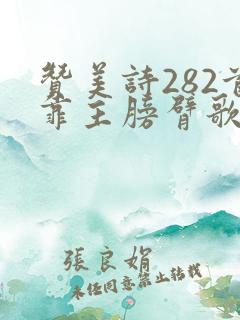 贊美詩282首
靠主膀臂歌
張良娟
未經同意禁止轉載